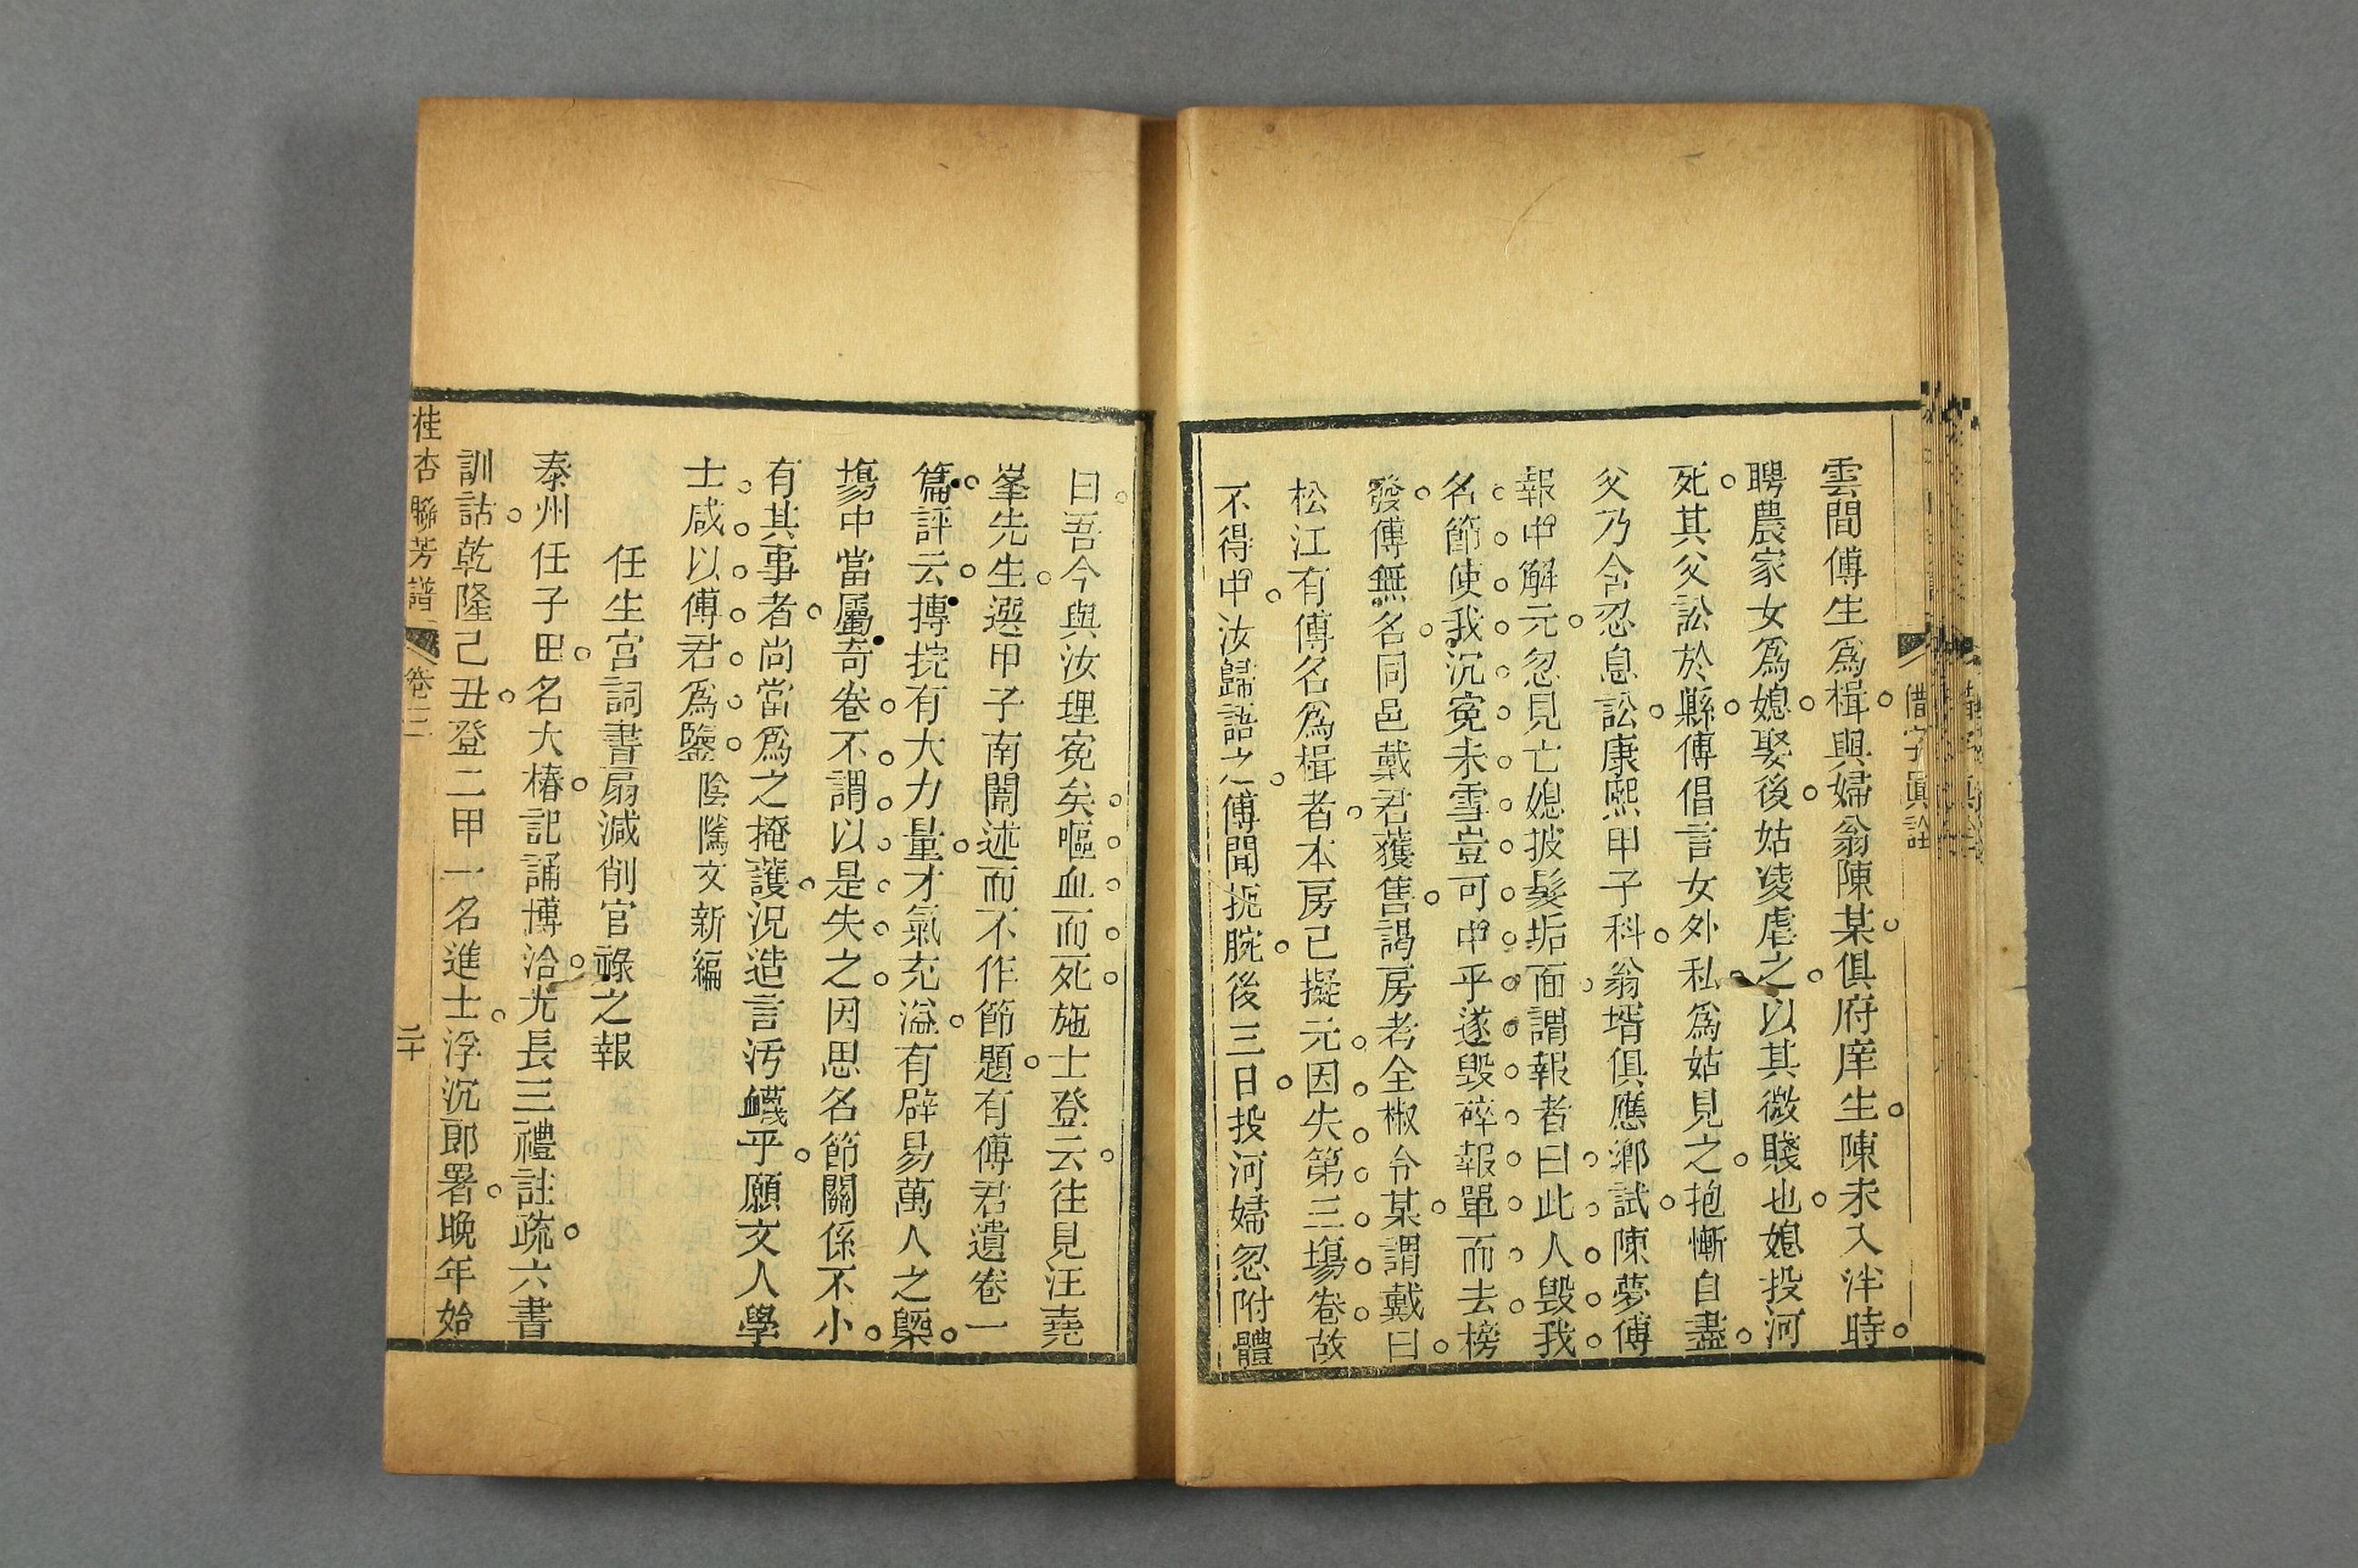 雲間傅生為楫與婦翁陳某俱府庠生陳未入泮時
聘農家女為媳娶後姑凌虐之以其微賤也媳投河
死其父訟於縣傅倡言女外私為姑見之抱慚自盡
父乃含忍息訟康熙甲子科翁壻俱應鄉試陳夢傅
報中解元忽見亡媳披髮垢面謂報者曰此人毀我
名節使我沉寃未雪豈可中乎遂毀碎報單而去榜
發傅無名同邑戴君獲售謁房考全椒令某謂戴曰
松江有傅名為楫者本房已擬元因失第三塲卷故
不得中汝歸語之傅聞扼腕後三日投河婦忽附體
曰吾今與汝理寃矣嘔血而死施士登云往見汪堯
峯先生選甲子南闈述而不作節題有傅君遺卷一
篇評云摶捖有大力量才氣充溢有辟易萬人之槩
塲中當屬奇卷不謂以是失之因思名節關係不小
有其事者尚當為之掩護況造言汚衊乎願文人學
士咸以傅君為鑒 陰隲文新編
任生宮詞書扇減削官祿之報
泰州任子田名大椿記誦博洽尤長三禮註疏六書
訓詁乾隆己丑登二甲一名進士浮沉郎署晚年始
桂杏聯芳譜 卷二 二十